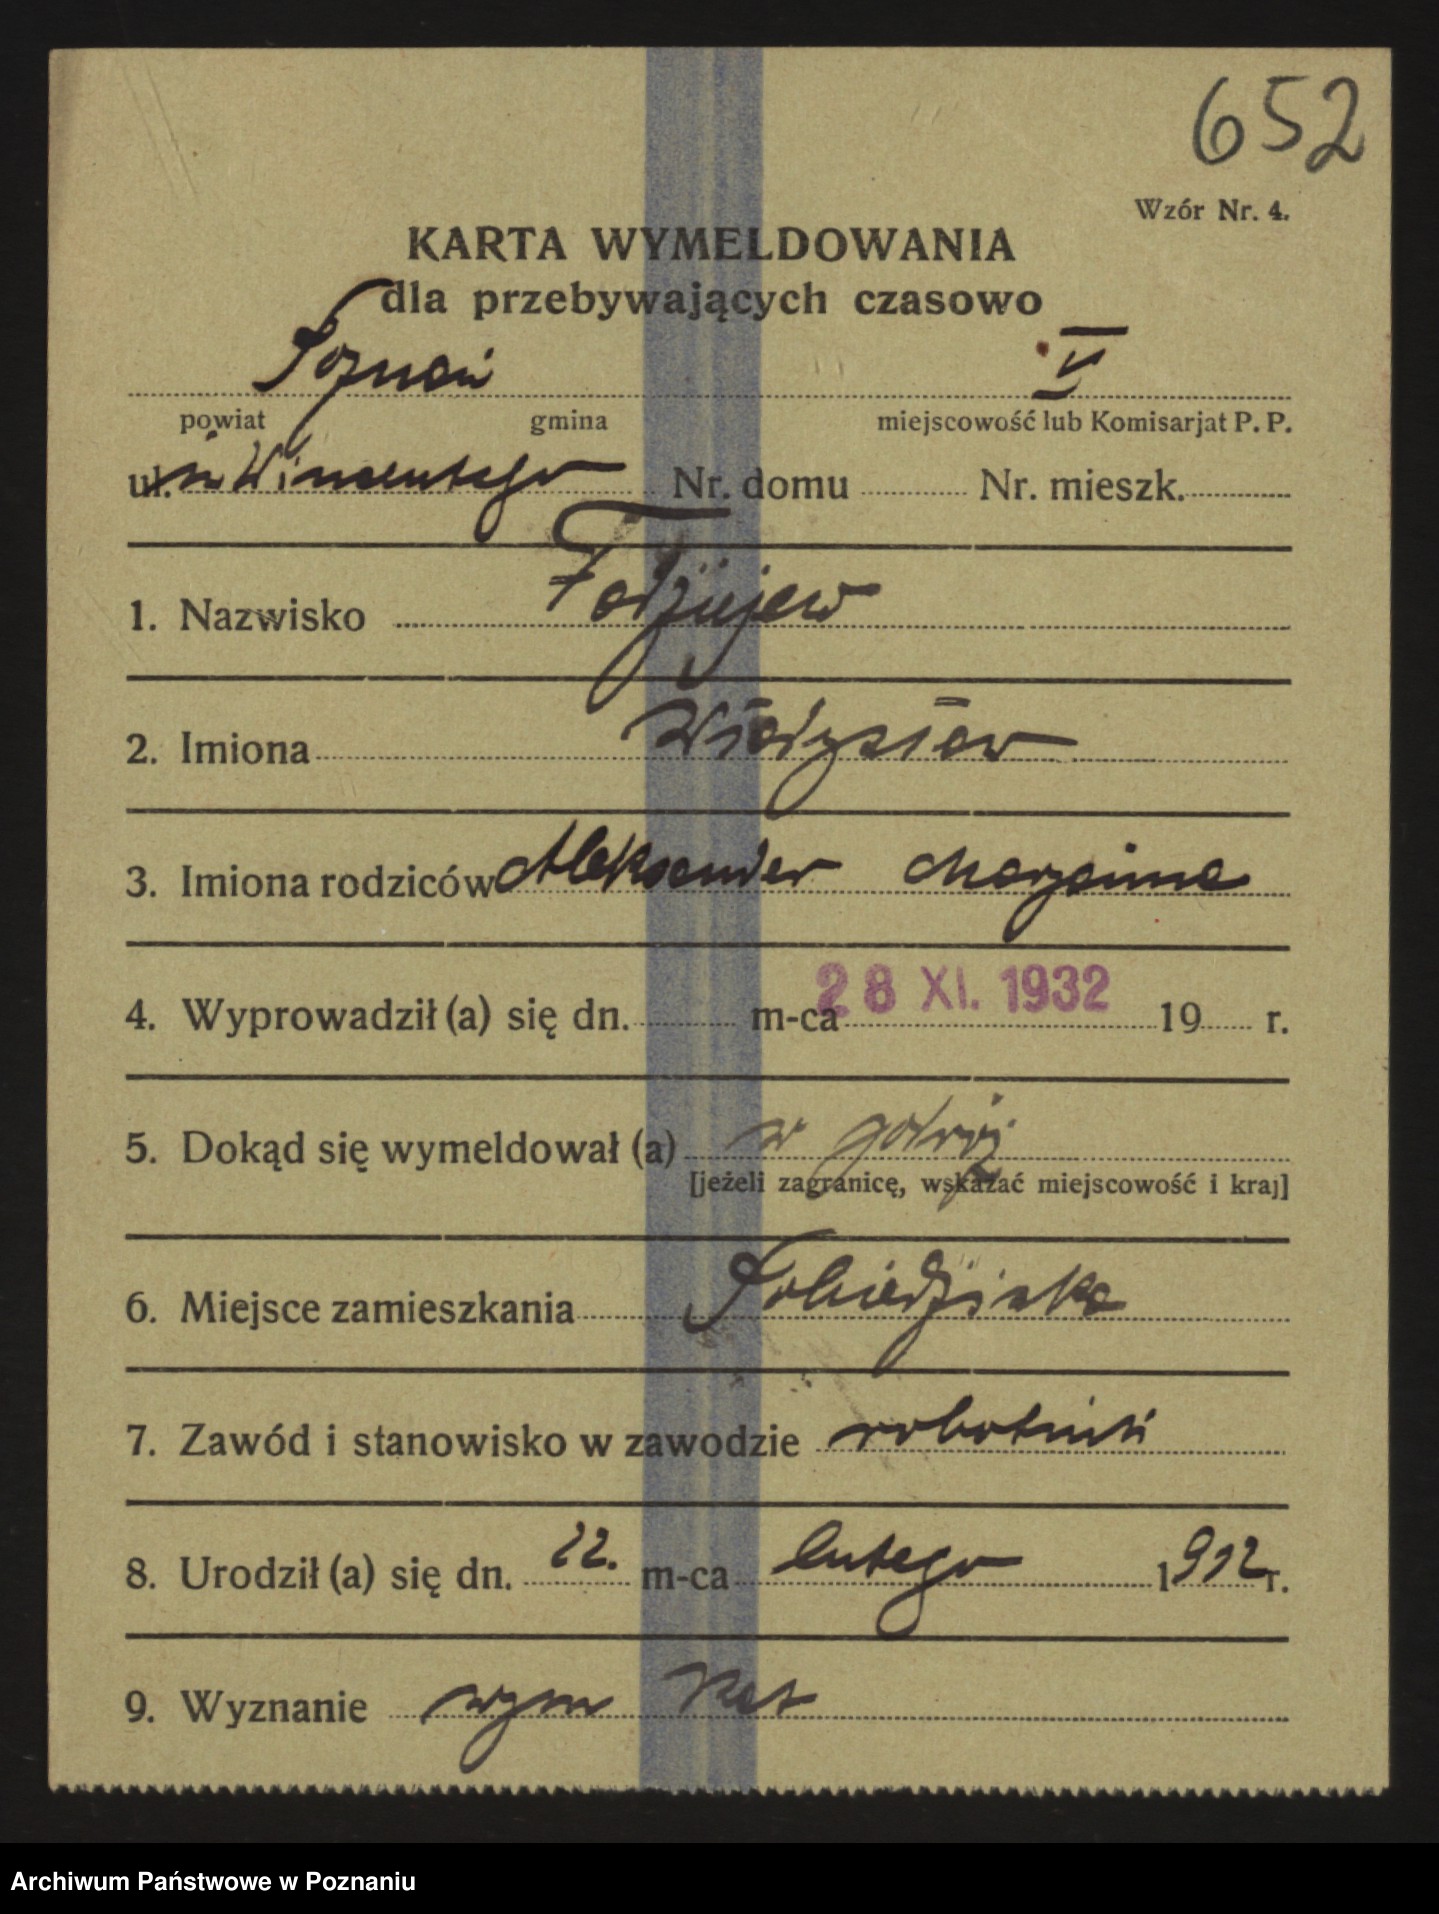 652
Wzór Nr. 4.
KARTA WYMELDOWANIA
dla przebywających czasowo
Poznań V
powiat gmina miejscowość lub Komisarjat P. P.
ul. św Wincentego Nr. domu Nr. mieszk.
1. Nazwisko Fadziejew
2. Imiona Władysław
3. Imiona rodziców Aleksander Marjanna
4. Wyprowadził (a) się dn. m-ca 28 XI. 1932 19 r.
5. Dokąd się wymeldował (a) w
[jeżeli zagranicę, wskazać miejscowość i kraj]
6. Miejsce zamieszkania Pobiedziska
7. Zawód i stanowisko w zawodzie robotnik
8. Urodził (a) się dn. 22. m-ca lutego 1912 r.
9. Wyznanie rzym kat
Archiwum Państwowe w Poznaniu